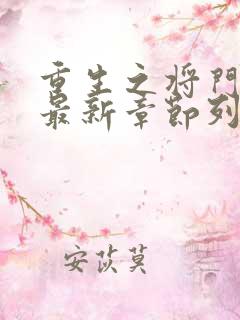 重生之将门
最新章节列
安苡莫